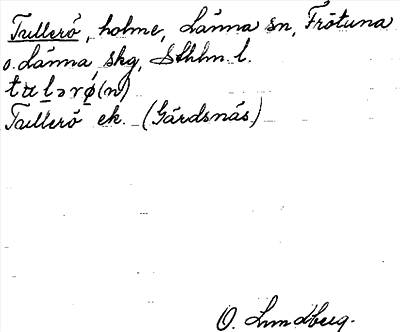 Tullerö, holme, Länna sn, Frötuna
o. Länna skg, Sthlm l.
tʉlərø(n)
Tullerö ek. (Gårdsnäs)
O. Lundberg.